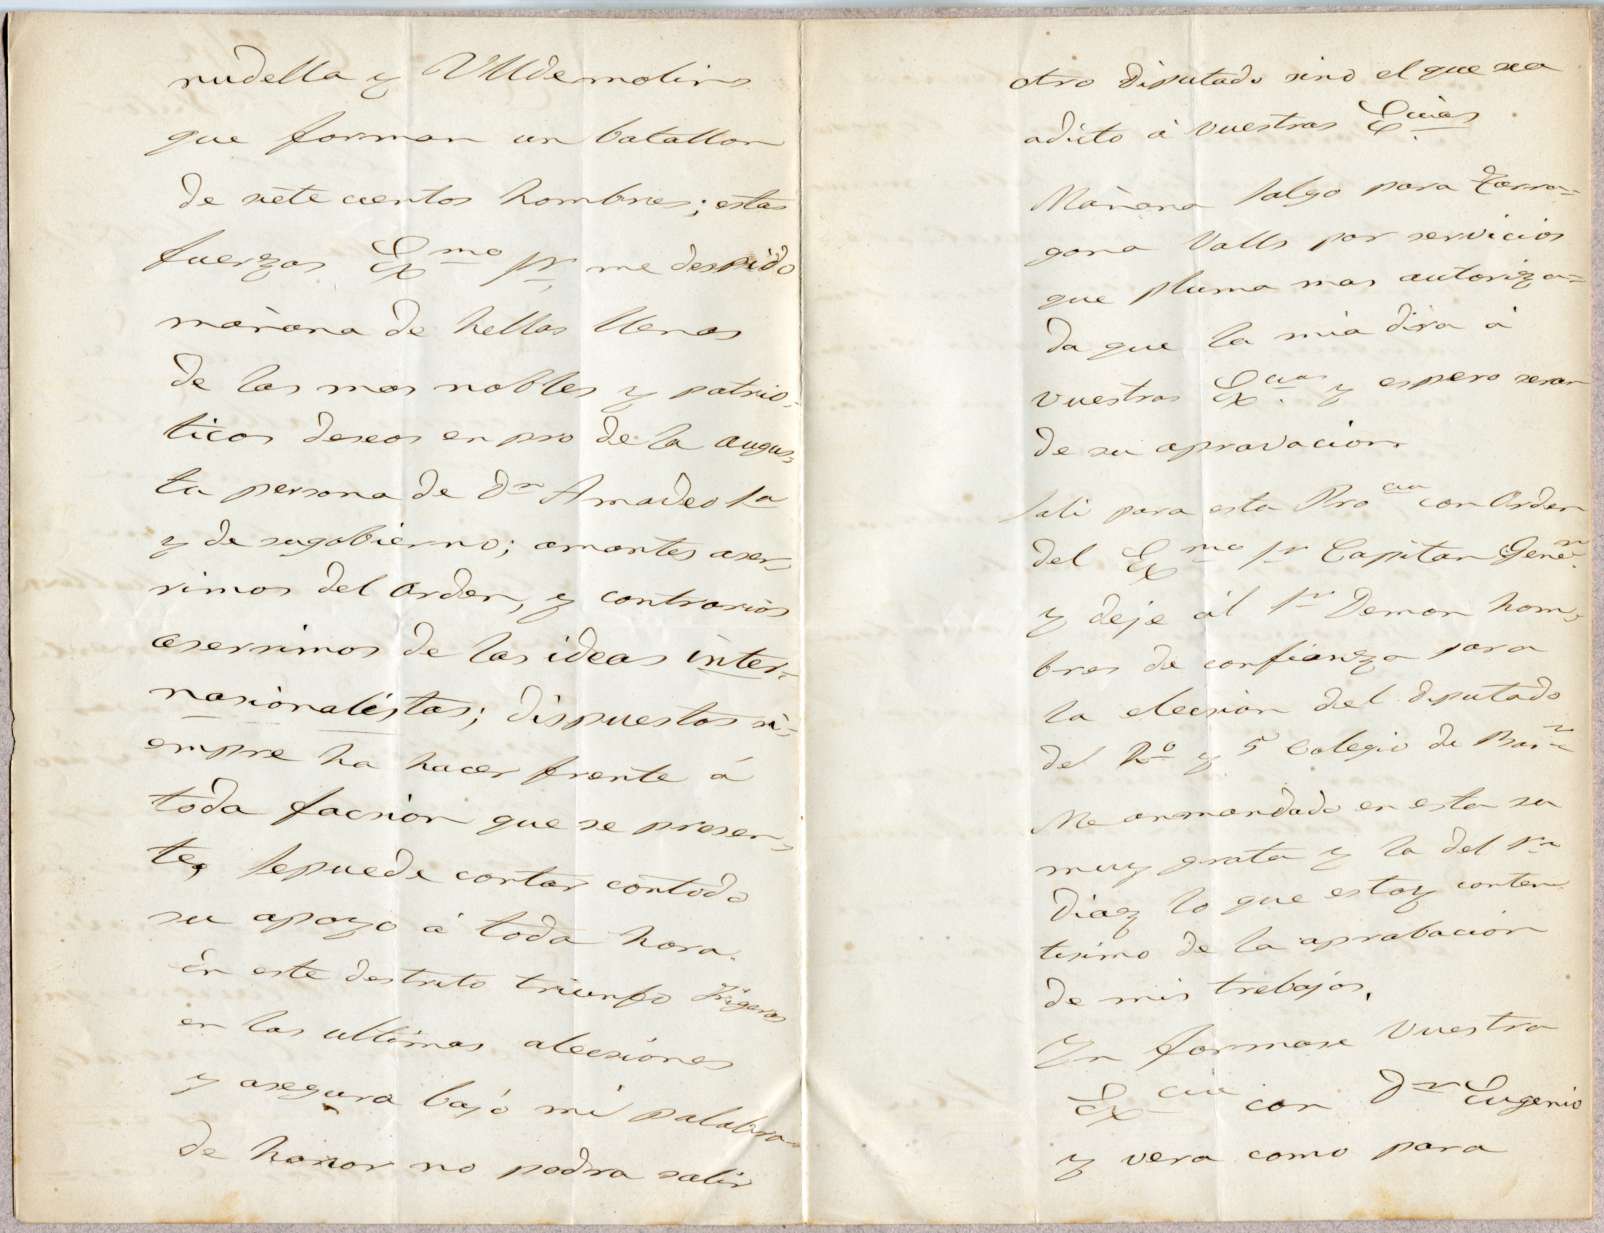 nudella y Ulldemolins
que forman un batallon
de siete cientos hombres; estas
fuerzas Exmo Sr me despido
mañana de hellas llenas
de los mas nobles y patrio-
ticos deseos en pro de la augus-
ta persona de Dn Amadeo 1a
y de sugobierno; amantes aser-
rimos del orden, y contrarios
aserrimos de las ideas inter-
nasionalistas; dispuestos si-
empre ha hacer frente á
toda facsion que se presen-
te, sepuede contar contodo
su apoyo á toda hora.
En este destrito triunfo
en las ultimas alecsiones
y asegura bajo mi palabra
de honor no podra salir
otro Diputado sino el que sea
adicto á vuestras
Mañana salgo para Tarra-
gona Valls por servicios
que pluma mas autoriza-
da que la mia dira á
vuestras Excias y espero seran
de su apravacion
Sali para esta Procia con Orden
del Exmo Sr Capitan Genel
y deje ál Sr Demon hom-
bres de confianza para
la elecsion del diputado
del 2o y 5 Colegio de Barna
Me anmandado en esta su
muy grata y la del Sr
Diaz lo que estoy conten
tisimo de la aprabacion
de mis trebajos.
In formase Vuestra
Excia con Dn Eugenio
y vera como para